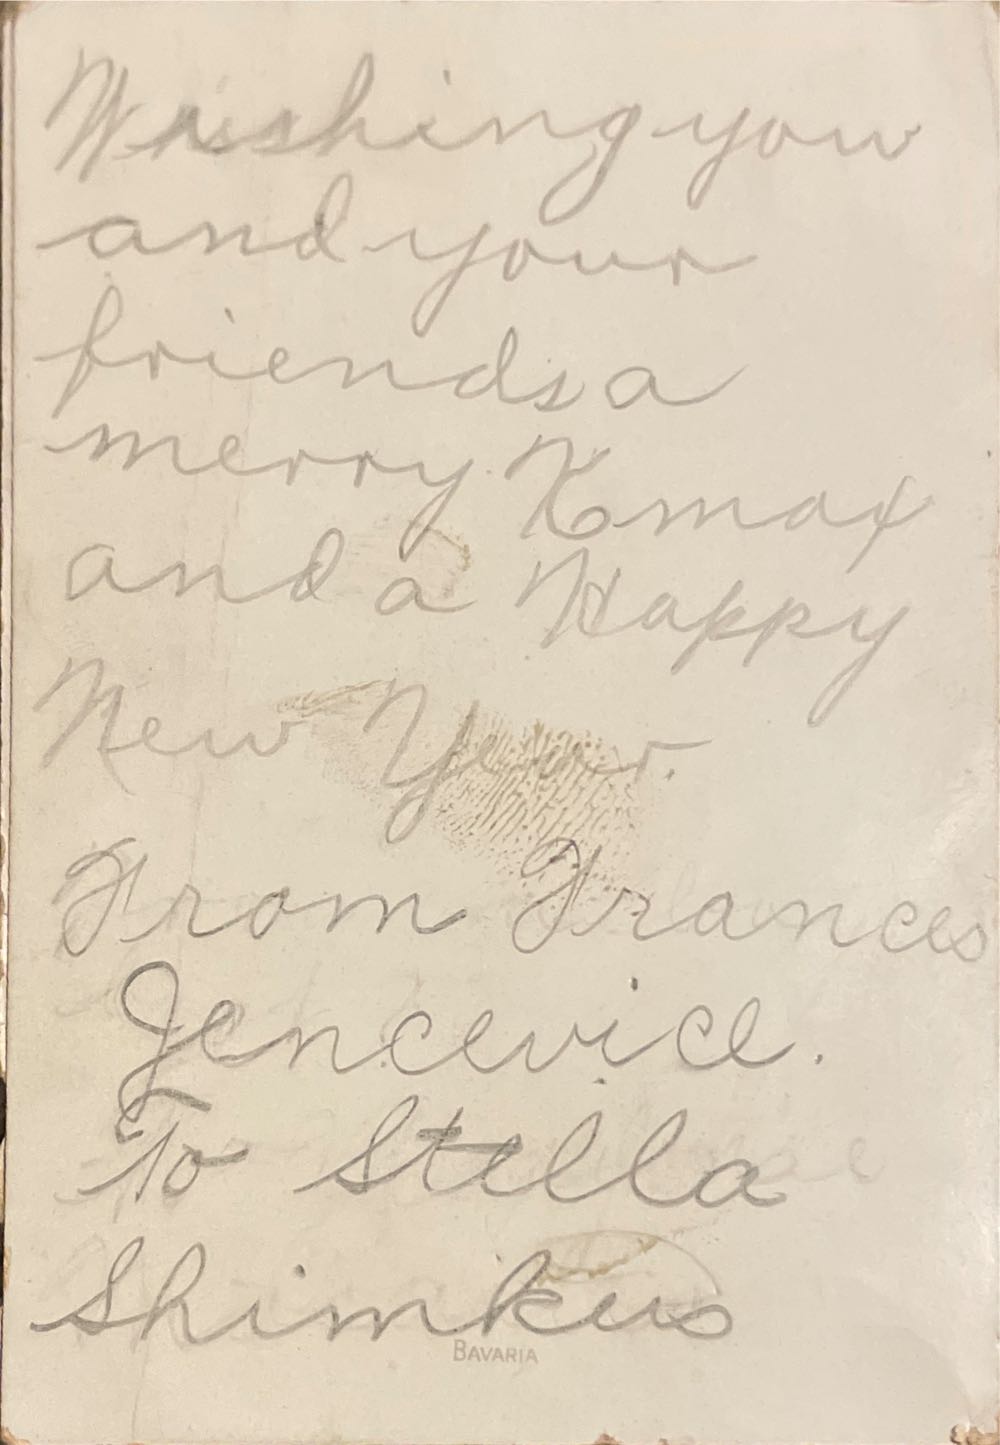 Wishing you
and your
friends a
merry Xmax
and a Happy
New Year.
From Frances
Jencevice.
To Stella
Shimkus
BAVARIA